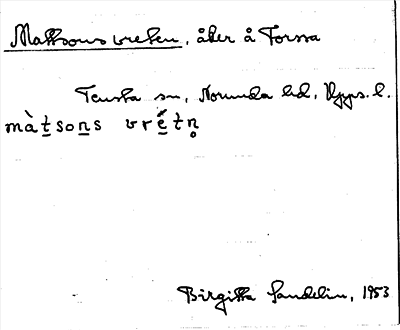 Mattsons vreten, åker å Forssa
Tensta sn, Norunda hd, Upps. l.
màtsons vrétn̥
Birgitta Sandelin, 1953